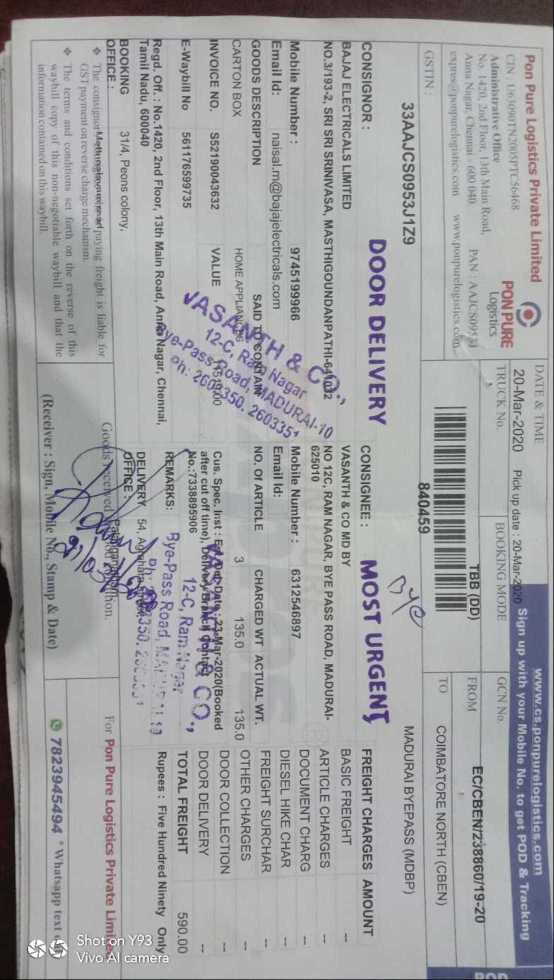 Pon Pure Logistics Private Limited
CIN : U63090TN2005PTC56468
Administrative Office
No. 1420, 2nd Floor, 13th Main Road,
Anna Nagar, Chennai - 600 040
PAN : AAJCS0953J
expres@ponpurelogistics.com www.ponpurelogistics.com
PON PURE
Logistics
GSTIN : 33AAJCS0953J1Z9
DATE & TIME
20-Mar-2020 Pick up date : 20-Mar-2020
TRUCK No.
BOOKING MODE
TBB (DD)
840459
www.cs.ponpurelogistics.com
Sign up with your Mobile No. to get POD & Tracking
GCN No. EC/CBEN/238860/19-20
FROM COIMBATORE NORTH (CBEN)
TO MADURAI BYEPASS (MDBP)
CONSIGNOR : DOOR DELIVERY
BAJAJ ELECTRICALS LIMITED
NO.3/193-2, SRI SRI SRINIVASA, MASTHIGOUNDANPATHI-641032
Mobile Number : 9745199966
Email Id: naisal.m@bajajelectricals.com
GOODS DESCRIPTION SAID TO CONTAIN
CARTON BOX HOME APPLIANCES
INVOICE NO. S52190043632 VALUE
E-Waybill No 561176599735
Regd. Off. : No.1420, 2nd Floor, 13th Main Road, Anna Nagar, Chennai,
Tamil Nadu, 600040
BOOKING OFFICE : 31/4, Peons colony,
CONSIGNEE : MOST URGENT
Bye
VASANTH & CO MD BY
NO 12C, RAM NAGAR, BYE PASS ROAD, MADURAI-
625010
Mobile Number : 6312546897
Email Id:
NO. Of ARTICLE CHARGED WT ACTUAL WT.
3 135.0 135.0
Cus. Spec. Inst : 23-Mar-2020(Booked
after cut off time), Delivery Branch Contact
No.:7338895906
REMARKS:
DELIVERY OFFICE : 54,
VASANTH & CO.,
12-C, Ram Nagar
Bye-Pass Road, MADURAI-10
Ph: 2606350, 2603351
& CO.,
12-C, Ram Nagar
Bye-Pass Road,
FREIGHT CHARGES AMOUNT
BASIC FREIGHT --
ARTICLE CHARGES --
DOCUMENT CHARG --
DIESEL HIKE CHAR --
FREIGHT SURCHAR --
OTHER CHARGES --
DOOR COLLECTION --
DOOR DELIVERY --
TOTAL FREIGHT 590.00
Rupees : Five Hundred Ninety Only
❖ The consignor paying freight is liable for
GST payment on reverse charge mechanism.
❖ The terms and conditions set forth on the reverse of this
waybill copy of this non-negotiable waybill and that the
information contained on this waybill.
Goods received condition.
(Receiver : Sign, Mobile No., Stamp & Date)
For Pon Pure Logistics Private Limited
7823945494 * Whatsapp text
POD
Shot on Y93
Vivo AI camera